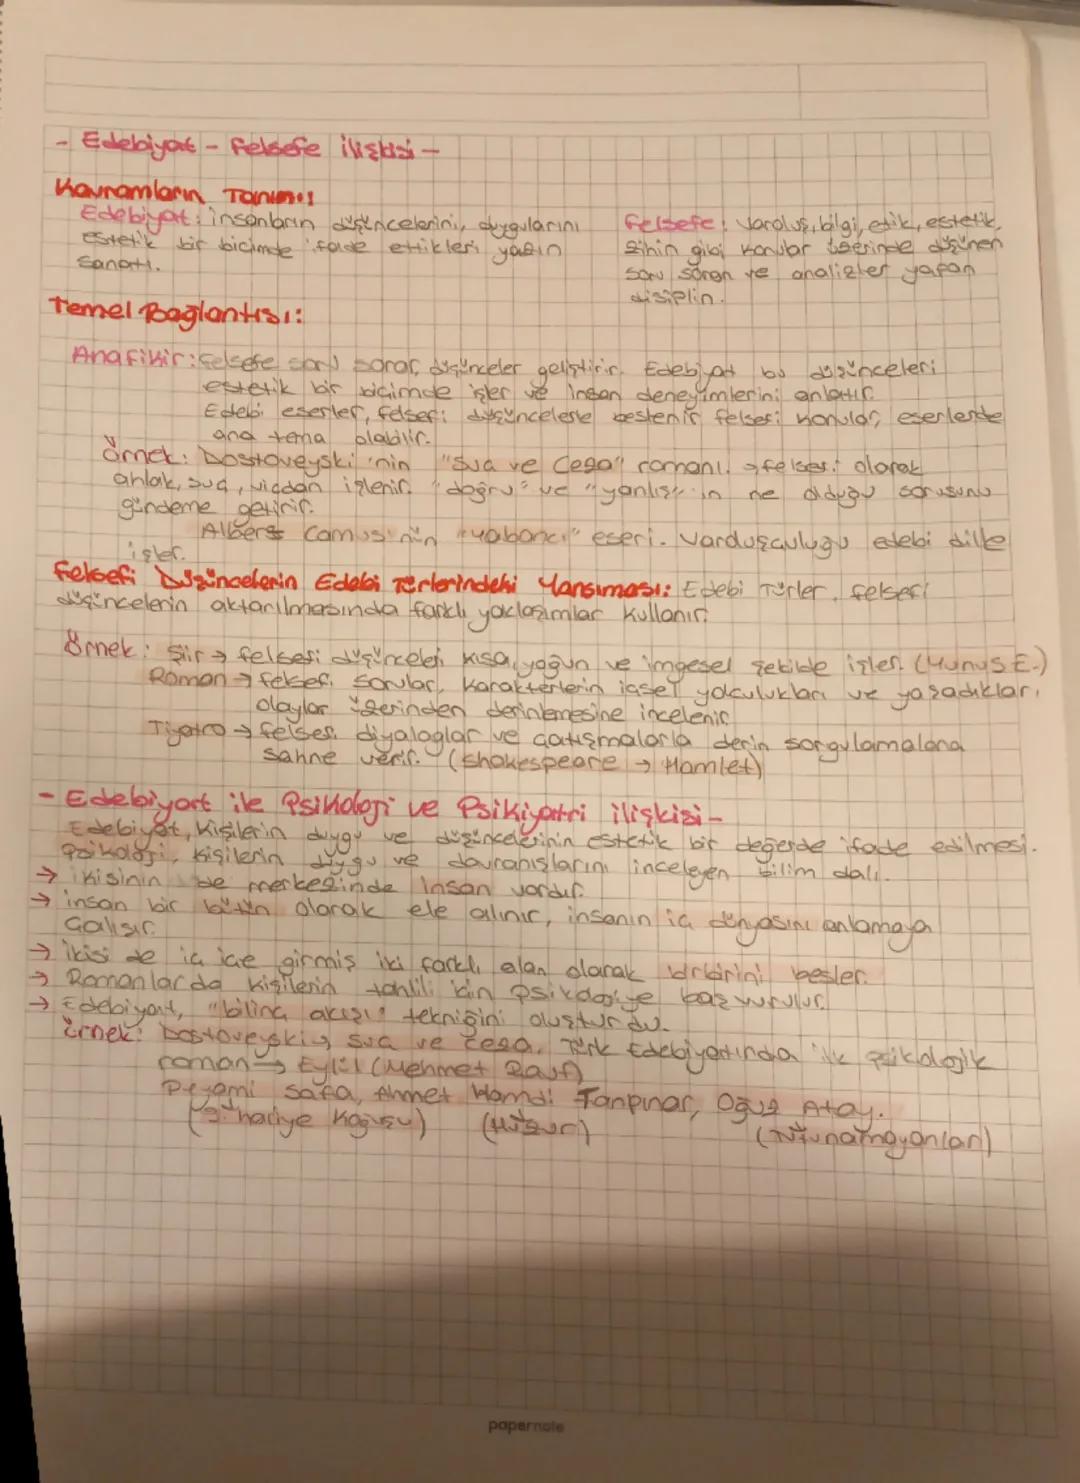 - Edebiyat - Felsefe ilişkisi -
Kavramların Tanımı:
Edebiyat: insanların düşüncelerini, duygularını
estetik bir biçimde ifade ettikleri yazın
sanatı.
Felsefe: Varoluş, bilgi, etik, estetik,
zihin gibi konular üzerinde düşünen
soru soran ve analizler yapan
disiplin.
Temel Bağlantısı:
Anafikir: Felsefe soru sorar, düşünceler geliştirir. Edebiyat bu düşünceleri
estetik bir biçimde işler ve insan deneyimlerini anlatır.
Edebi eserler, felsefi düşüncelerle beslenir felsefi konular, eserlerde
ana tema olabilir.
Örnek: Dostoveyski'nin "Suç ve Ceza" romanı. → felsefi olarak
ahlak, suç, vicdan işlenir. "doğru" ve "yanlış" ın ne olduğu sorusunu
gündeme getirir.
Albert Camus'nün "Yabancı" eseri. Varoluşçuluğu edebi dille
işler.
Felsefi Düşüncelerin Edebi Türlerindeki Yansıması: Edebi Türler, felsefi
düşüncelerin aktarılmasında farklı yaklaşımlar kullanır.
Örnek: Şiir → felsefi düşünceleri kısa, yoğun ve imgesel şekilde işler. (Yunus E.)
Roman → felsefi sorular, karakterlerin içsel yolculukları ve yaşadıkları
olaylar üzerinden derinlemesine incelenir
Tiyatro → felsefi diyaloglar ve çatışmalarla derin sorgulamalara
sahne verir. (Shakespeare → Hamlet)
- Edebiyat ile Psikoloji ve Psikiyatri ilişkisi -
Edebiyat, kişilerin duygu ve düşüncelerinin estetik bir değerde ifade edilmesi.
Psikoloji, kişilerin duygu ve davranışlarını inceleyen bilim dalı.
→ ikisinin de merkezinde insan vardır.
→ insan bir bütün olarak ele alınır, insanın iç dünyasını anlamaya
çalışır.
→ ikisi de iç içe girmiş iki farklı alan olarak birbirini besler.
→ Romanlarda kişilerin tahlili için psikolojiye başvurulur.
→ Edebiyat, "bilinç akışı" tekniğini oluşturdu.
Örnek: Dostoveyski → Suç ve Ceza, Türk Edebiyatında ilk psikolojik
roman → Eylül (Mehmet Rauf)
Peyami Safa, Ahmet Hamdi Tanpınar, Oğuz Atay.
(9. hariye Koğuşu) (Huzur) (Tutunamayanlar)
papernote